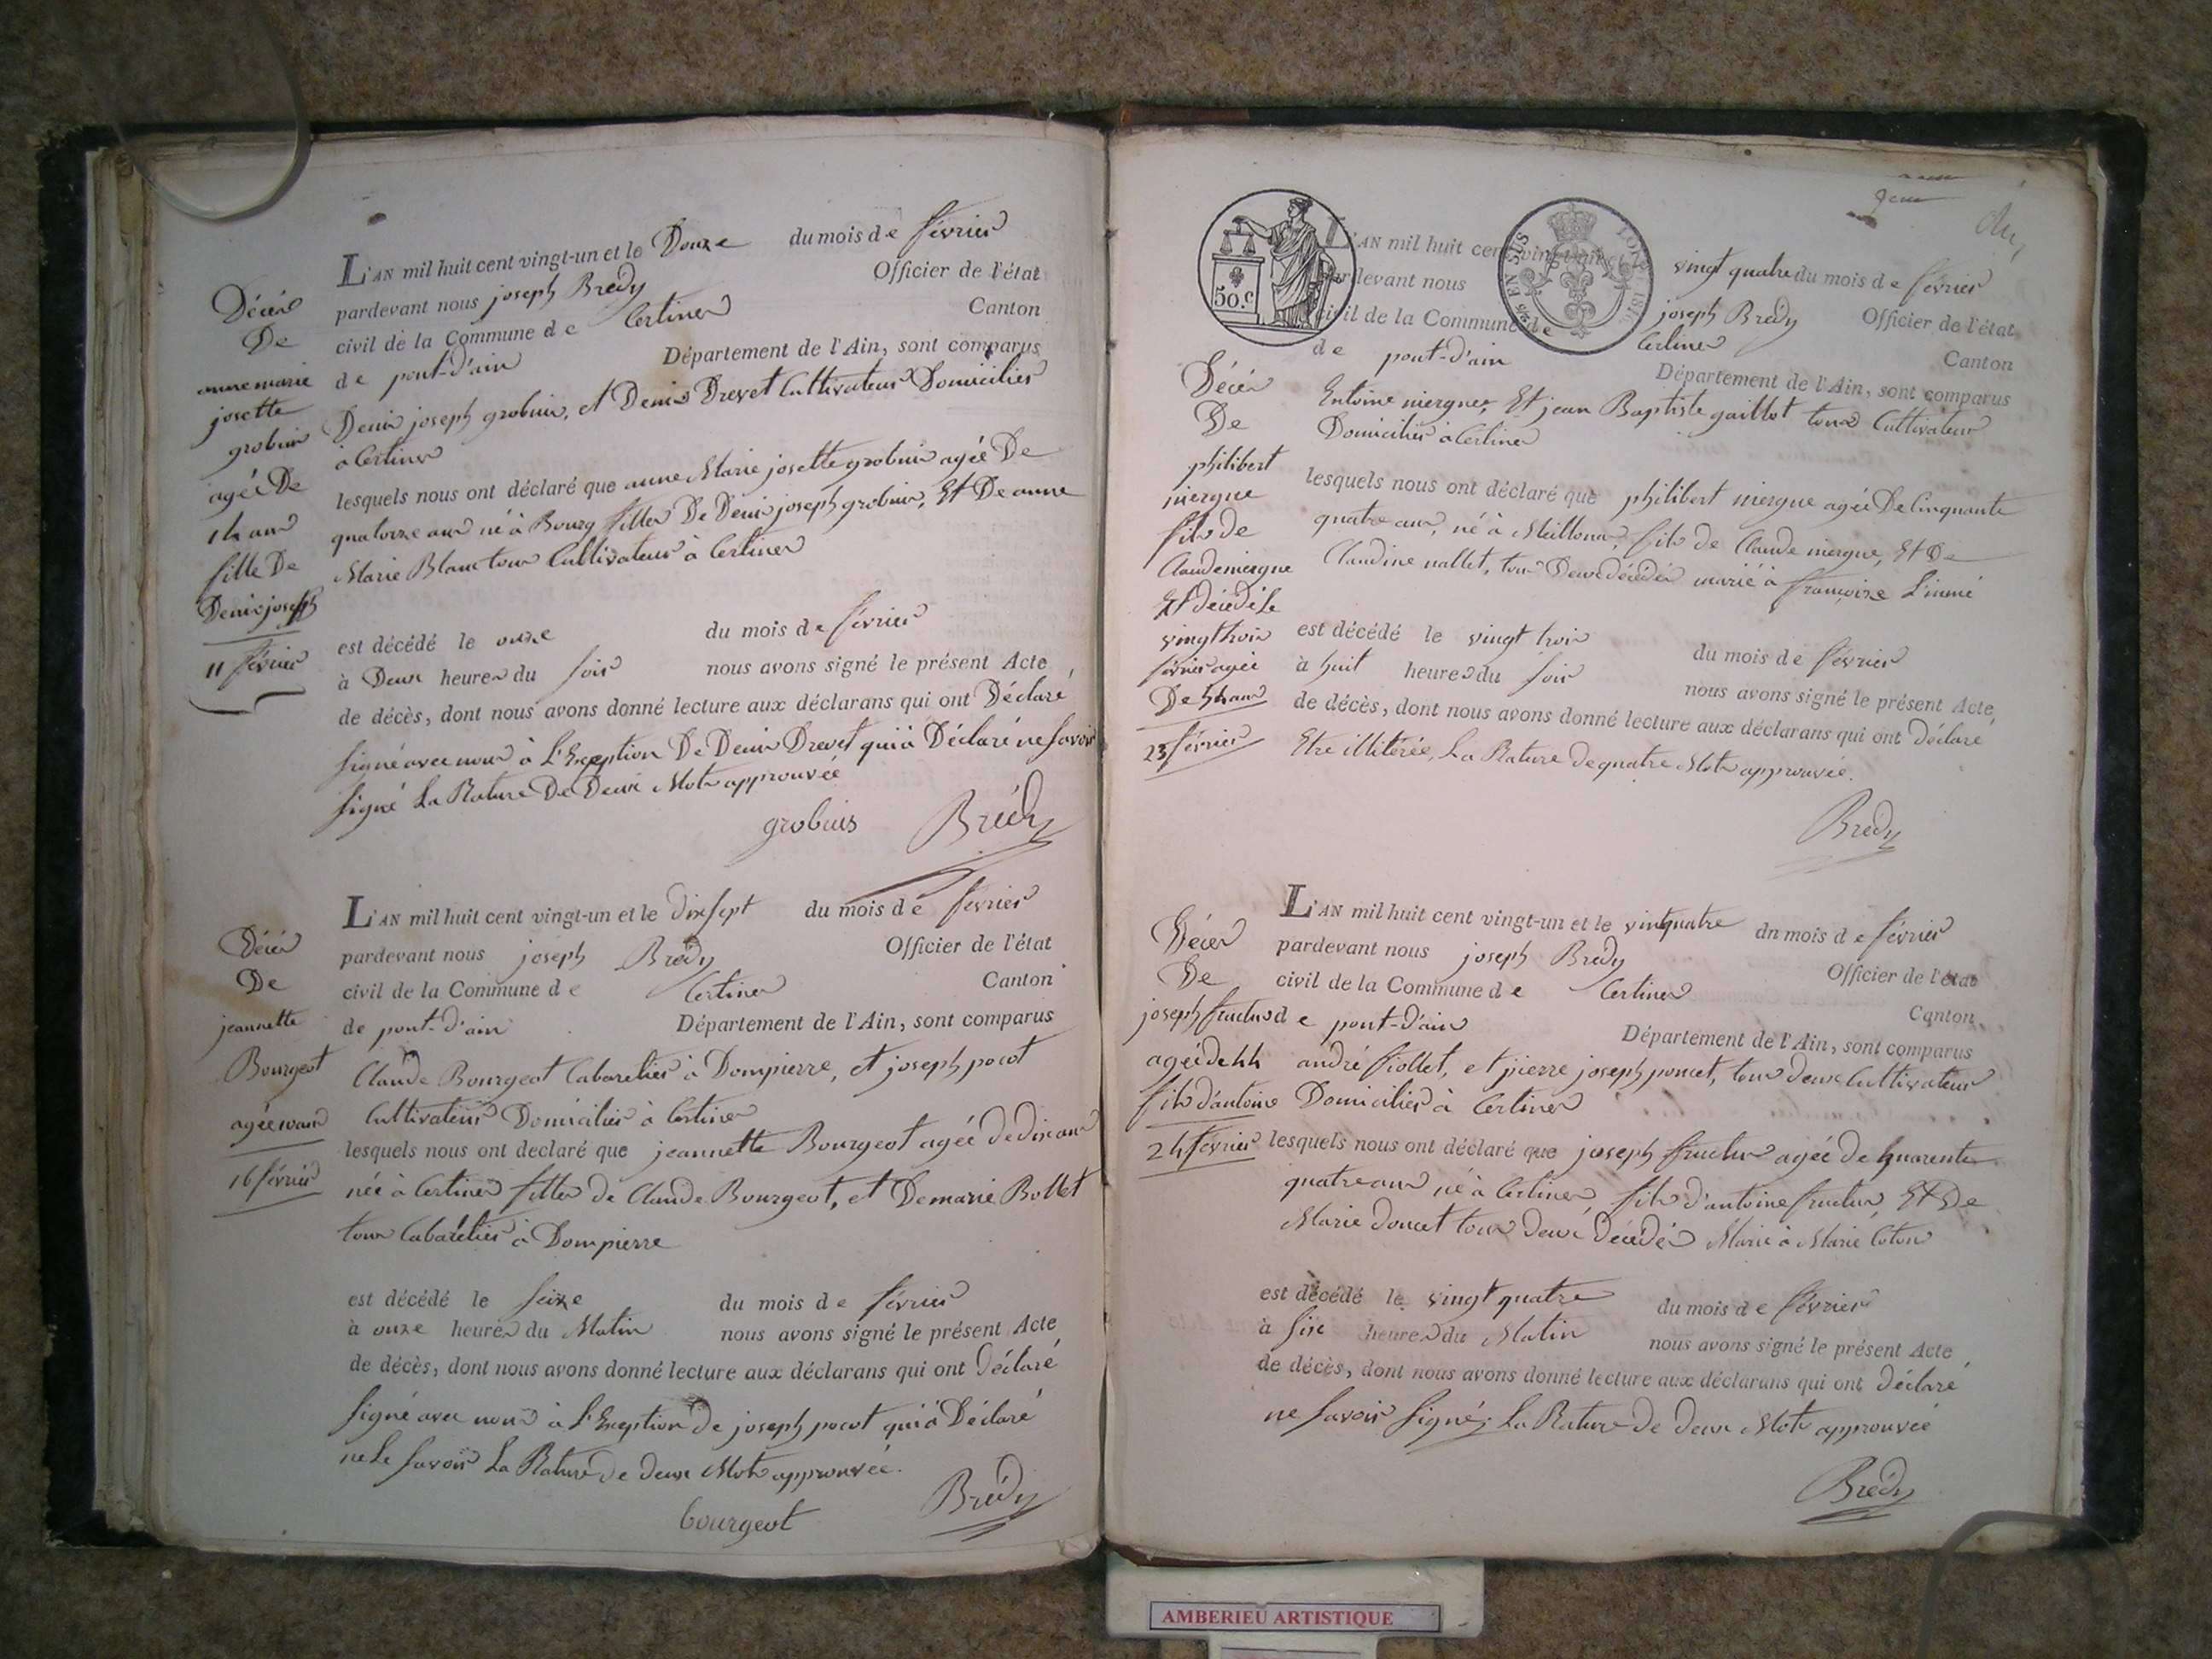 L'AN mil huit cent vingt-un et le Douze du mois de février
pardevant nous joseph Brédy Officier de l'état
civil de la Commune de Certines Canton
de pont-d'ain Département de l'Ain, sont comparus
Denis joseph grobuis, et Denis Drevet Cultivateurs Domicilies
à Certines
lesquels nous ont déclaré que anne Marie josette grobuis agée De
quatorze ans né à Bourg filles De Denis joseph grobuis, Et De anne
Marie Blanc tous Cultivateurs à Certines
est décédé le onze du mois de février
à Deux heures du soir nous avons signé le présent Acte
de décès, dont nous avons donné lecture aux déclarans qui ont Déclaré
signé avec nous à L'Exception De Denis Drevet qui à Déclaré ne savoir
signé La Rature De Deux Mots approuvée
grobuis Brédy
Décès
De
anne marie
josette
grobuis
agée De
14 ans
fille De
Denis joseph
11 février
L'AN mil huit cent vingt-un et le dix sept du mois de février
pardevant nous joseph Brédy Officier de l'état
civil de la Commune de Certines Canton
de pont-d'ain Département de l'Ain, sont comparus
Claude Bourgeot Cabaretier à Dompierre, et joseph pocot
Cultivateurs Domicilies à Certines
lesquels nous ont declaré que jeannette Bourgeot agée de dix ans
née à Certines filles de Claude Bourgeot, et De marie Bollet
tous Cabaretiés à Dompierre
est décédé le seize du mois de février
à onze heures du Matin nous avons signé le présent Acte
de décès, dont nous avons donné lecture aux déclarans qui ont Déclaré
signé avec nous à L'Exception de joseph pocot qui à Déclaré
ne Le savoir La Rature de deux Mots approuvée.
bourgeot Brédy
Décès
De
jeannette
Bourgeot
agée 10 ans
16 février
L'AN mil huit cent vingt-un et le vingt quatre du mois de février
pardevant nous joseph Bredy Officier de l'état
civil de la Commune de Certines Canton
de pont-d'ain Département de l'Ain, sont comparus
Entoine niergue, Et jean Baptiste gaillot tous Cultivateurs
Domiciliés à Certines
lesquels nous ont déclaré que philibert niergue agée De Cinquante
quatre ans, né à Meillonas, fils de Claude niergue, Et De
Claudine nallet, tous Deux décédés marié à françoise
est décédé le vingt trois du mois de février
à huit heures du soir nous avons signé le présent Acte,
de décès, dont nous avons donné lecture aux déclarans qui ont déclaré
Etre illiterée, La Rature de quatre Mots approuvée.
Bredy
50.c
Décès
De
philibert
niergue
fils de
Claude niergue
Et décédé Le
vingt trois
février agée
De 54 ans
23 février
L'AN mil huit cent vingt-un et le vintquatre du mois de février
pardevant nous joseph Bredy Officier de l'état
civil de la Commune de Certines Canton
de pont-d'ain Département de l'Ain, sont comparus
andré fiollet, et pierre joseph poncet, tous deux Cultivateurs
Domiciliés à Certines
lesquels nous ont déclaré que joseph fructus agée de quarente
quatre ans né à Certines, fils d'antoine fructus, Et De
Marie doucet tous deux Décédés Marié à Marie Coton
est décédé le vingt quatre du mois de février
à six heures du Matin nous avons signé le présent Acte
de décès, dont nous avons donné lecture aux déclarans qui ont déclaré
ne savoir signé; La Rature de deux Mots approuvée
Brédy
Décès
De
joseph fructus
agée de 44
fils d'antoine
24 février
AMBERIEU ARTISTIQUE